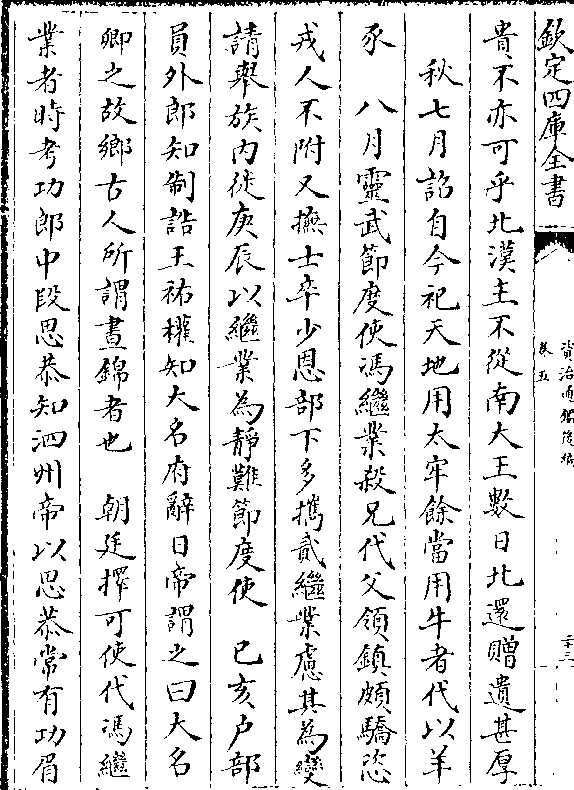 欽定四庫全書
資治通鑑後編
卷五
二十三
貴不亦可乎北漢主不從南大王數日北還贈遺甚厚
秋七月詔自今祀天地用太牢餘當用牛者代以羊
豕　八月靈武節度使馮繼業殺兄代父領鎮頗驕恣
戎人不附又撫士卒少恩部下多攜貳繼業慮其為變
請舉族內徙庚辰以繼業為靜難節度使　已亥户部
員外郎知制誥王祐權知大名府辭日帝謂之曰大名
卿之故鄉古人所謂晝錦者也　朝廷擇可使代馮繼
業者時考功郎中段思恭知泗州帝以思恭常有功眉